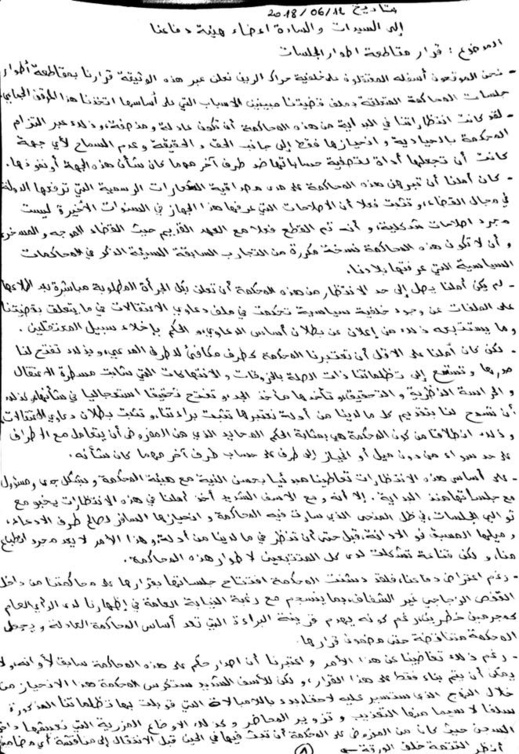 بتاريخ 2018/06/12
إلى السيدات والسادة أعضاء هيئة دفاعنا
الموضوع: قرار مقاطعة أطوار الجلسات
- نحن الموقعون أسفله المعتقلون على خلفية حراك الريف نعلن عبر هذه الوثيقة قرارنا بمقاطعة أطوار
جلسات المحاكمة المتعلقة بملف قضيتنا مبينين الأسباب التي على أساسها اتخذنا هذا الموقف
- لقد كانت انتظاراتنا في البداية من هذه المحاكمة أن تكون عادلة ومنصفة، وذلك عبر التزام
المحكمة بالحيادية وانحيازها فقط إلى جانب الحق والحقيقة وعدم السماح لأي جهة
كانت أن تجعلها أداة لتصفية حساباتها ضد طرف آخر مهما كان شأن هذه الجهة أو نفوذها.
- كان أملنا أن تبرهن هذه المحاكمة على مدى مصداقية الشعارات الرسمية التي ترفعها الدولة
في مجال القضاء، وتثبت فعلا أن الإصلاحات التي عرفها هذا الجهاز في السنوات الأخيرة ليست
مجرد إصلاحات شكلية، وأنه تم القطع فعلا مع العهد القديم حيث القضاء الموجه والمسخر،
وأن لا تكون هذه المحاكمة نسخة مكررة من التجارب السابقة السيئة الذكر في المحاكمات
السياسية التي عرفتها بلادنا.
- لم يكن أملنا يصل إلى حد الانتظار من هذه المحكمة أن تعلن بكل الجرأة المطلوبة مباشرة بعد اطلاعها
على الملفات عن وجود خلفية سياسوية تحكمت في ملف دعاوي الاعتقالات في ما يتعلق بقضيتنا
وما يستتبعه ذلك من إعلان عن بطلان أساس الدعاوي، والحكم بإخلاء سبيل المعتقلين.
- لكن كان أملنا على الأقل أن تعتبرنا المحكمة كطرف مكافئ لطرف المدعي، وبذلك تفتح لنا
صدرها وتستمع إلى تظلماتنا ذات الصلة بالخروقات والانتهاكات التي شابت مسطرة الاعتقال
و الحراسة النظرية و التحقيق، وتأخذها مأخذ الجد، وتفتح تحقيقا استعجاليا في شأنها، كذلك
أن تسمح لنا بتقديم كل ما لدينا من أدلة نعتبرها تثبت براءتنا، وتثبت بطلان دعاوي الاعتقالات،
و ذلك انطلاقا من كون المحكمة هي بمثابة الحكم المحايد الذي من المفروض أن يتعامل مع الأطراف
على حد سواء من دون ميل أو انحياز إلى طرف على حساب طرف آخر مهما كان شأنه.
- على أساس هذه الانتظارات تعاطينا مبدئيا بحسن النية مع هيئة المحكمة وبشكل جدي ومسؤول
مع جلساتها منذ البداية. إلا أنه ومع الأسف الشديد أخذ أملنا في هذه الانتظارات يخبو مع
توالي الجلسات، في ظل المنحى الذي سارت فيه المحكمة و انحيازها السافر لصالح طرف الادعاء،
و ميلها المسبق نحو الإدانة، قبل حتى أن تنظر في ما لدينا من أدلة، و هذا الأمر لا يعد مجرد انطباع
منا، و لكن قناعة تشكلت لدى كل المتتبعين لأطوار هذه المحاكمة.
- رغم اعتراض دفاعنا، فلقد دشنت المحكمة افتتاح جلساتها بقرارها على محاكمتنا من داخل
القفص الزجاجي غير الشفاف، بما ينسجم مع رغبة النيابة العامة في إظهارنا لدى الرأي العام
كمجرمين خطيرين، رغم كونه يهدم قرينة البراءة التي تعد أساس المحاكمة العادلة و يجعل
المحكمة متناقضة حتى مضمون قرارها.
- رغم ذلك تغاضينا عن هذا الأمر واعتبرنا أن إصدار حكم على هذه المحاكمة سابق لأوانه، ولا
يمكن أن يتم بناء فقط على هذا القرار، ولكن للأسف الشديد ستكرس المحكمة هذا الانحياز من
خلال النهج الذي ستسير عليه لاحقا، بدءا باللامبالاة التي قوبلت بها تظلماتنا المذكورة
سلفا لا سيما منها التعذيب و تزوير المحاضر و كذلك الأوضاع المزرية التي نعيشها داخل
السجن حيث كان من المفروض على المحكمة أن تبحث فيها في الحين قبل الانتقال إلى مناقشة أي مضامين
أنظر التتمة خلف الورقة ←
1